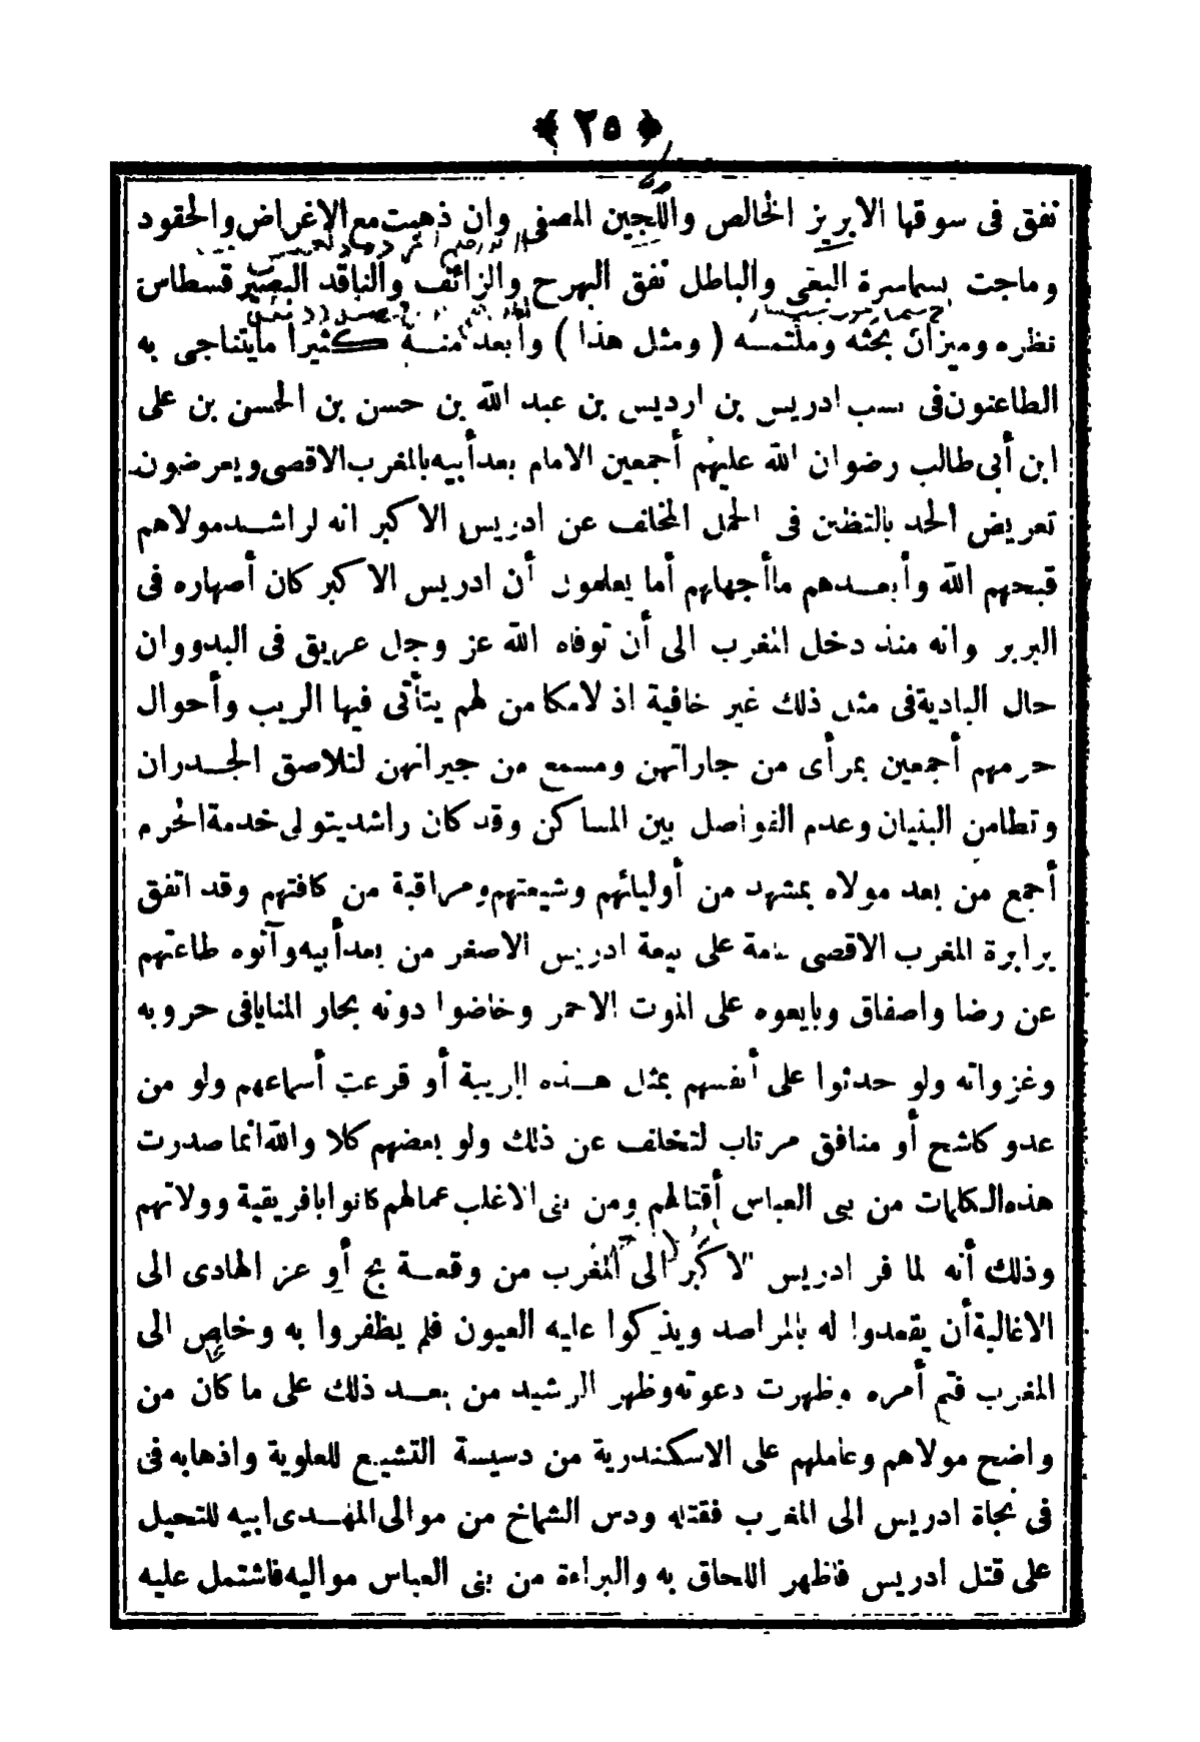 ﴿ ٢٥ ﴾
نفق فى سوقها الابريز الخالص واللجين المصفى وان ذهبت مع الاغراض والحقود
وماجت بسماسرة البغى والباطل نفق البهرج والزائف والناقد البصير قسطاس
نظره وميزان بحثه وملتمسه ( ومثل هذا ) وأبعد منه كثيرا مايتناجى به
الطاعنون فى نسب ادريس بن ادريس بن عبد الله بن حسن بن الحسن بن على
ابن أبى طالب رضوان الله عليهم أجمعين الامام بعد أبيه بالمغرب الاقصى ويعرضون
تعريض الحد بالتظنن فى الحمل المخلف عن ادريس الاكبر انه لراشد مولاهم
قبحهم الله وأبعدهم ماأجهلهم أما يعلمون أن ادريس الاكبر كان أصهاره فى
البربر وانه منذ دخل المغرب الى أن توفاه الله عز وجل عريق فى البدو وان
حال البادية فى مثل ذلك غير خافية اذ لامكامن لهم يتأتى فيها الريب وأحوال
حرمهم أجمعين بمرأى من جاراتهن ومسمع من جيرانهن لتلاصق الجدران
وتطامن البنيان وعدم الفواصل بين المساكن وقد كان راشد يتولى خدمة الحرم
أجمع من بعد مولاه بمشهد من أوليائهم وشيعتهم ومراقبة من كافتهم وقد اتفق
برابرة المغرب الاقصى عامة على بيعة ادريس الاصغر من بعد أبيه وآتوه طاعتهم
عن رضا واصفاق وبايعوه على الموت الاحمر وخاضوا دونه بحار المنايا فى حروبه
وغزواته ولو حدثوا على أنفسهم بمثل هذه الريبة أو قرعت أسماعهم ولو من
عدو كاشح أو منافق مرتاب لتخلف عن ذلك ولو بعضهم كلا والله انما صدرت
هذه الكلمات من بنى العباس أقتالهم ومن بنى الاغلب عمالهم كانوا بافريقية وولاتهم
وذلك أنه لما فر ادريس الاكبر الى المغرب من وقعة بخ أوعز الهادى الى
الاغالبة أن يقعدوا له بالمراصد ويذكوا عليه العيون فلم يظفروا به وخلص الى
المغرب فتم أمره وظهرت دعوته وظهر الرشيد من بعد ذلك على ما كان من
واضح مولاهم وعاملهم على الاسكندرية من دسيسة التشيع للعلوية واذهابه فى
فى نجاة ادريس الى المغرب فقتله ودس الشماخ من موالى المهدى ابيه للتحيل
على قتل ادريس فاظهر اللحاق به والبراءة من بنى العباس مواليه فاشتمل عليه